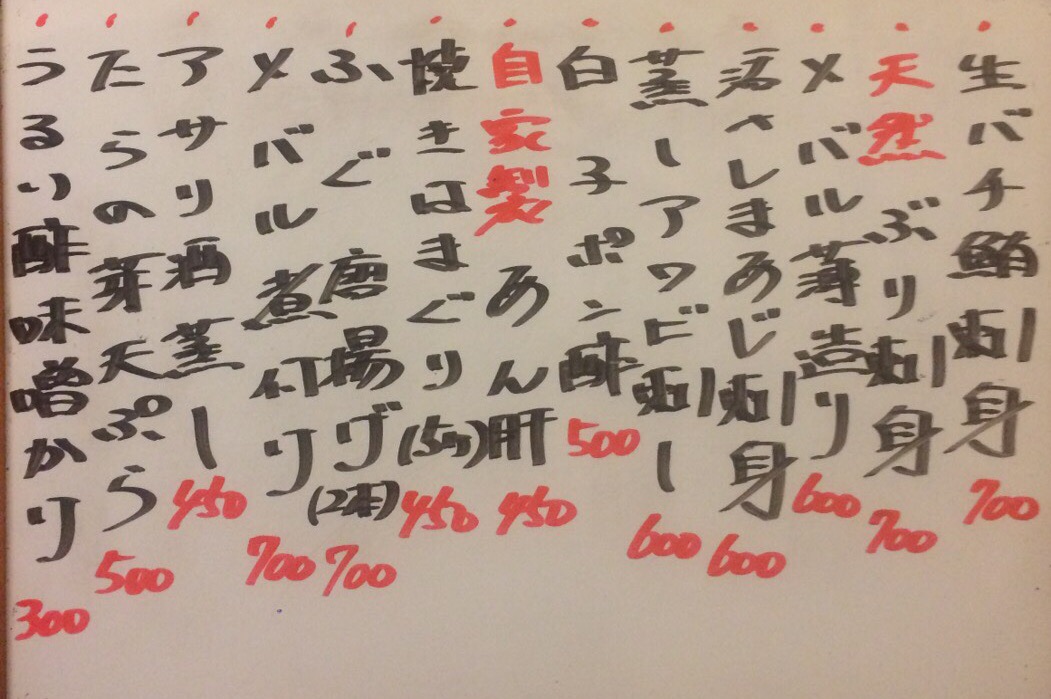 ・生バチ鮪刺身 700
・天然 ぶり刺身 700
・メバル薄造り 600
・活きしまあじ刺身 600
・蒸しアワビ刺し 600
・白子ポン酢 500
・自家製 あん肝 450
・焼きはまぐり(5ヶ) 450
・ふぐ唐揚げ(2本) 700
・メバル煮付け 700
・アサリ酒蒸し 450
・たらの芽天ぷら 500
・うるい酢味噌かけ 300